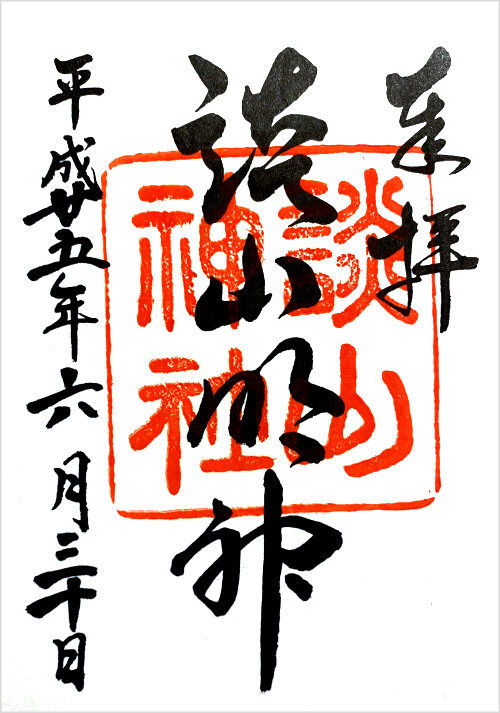 奉拝
談山明神
談山神社
平成廿五年六月三十日